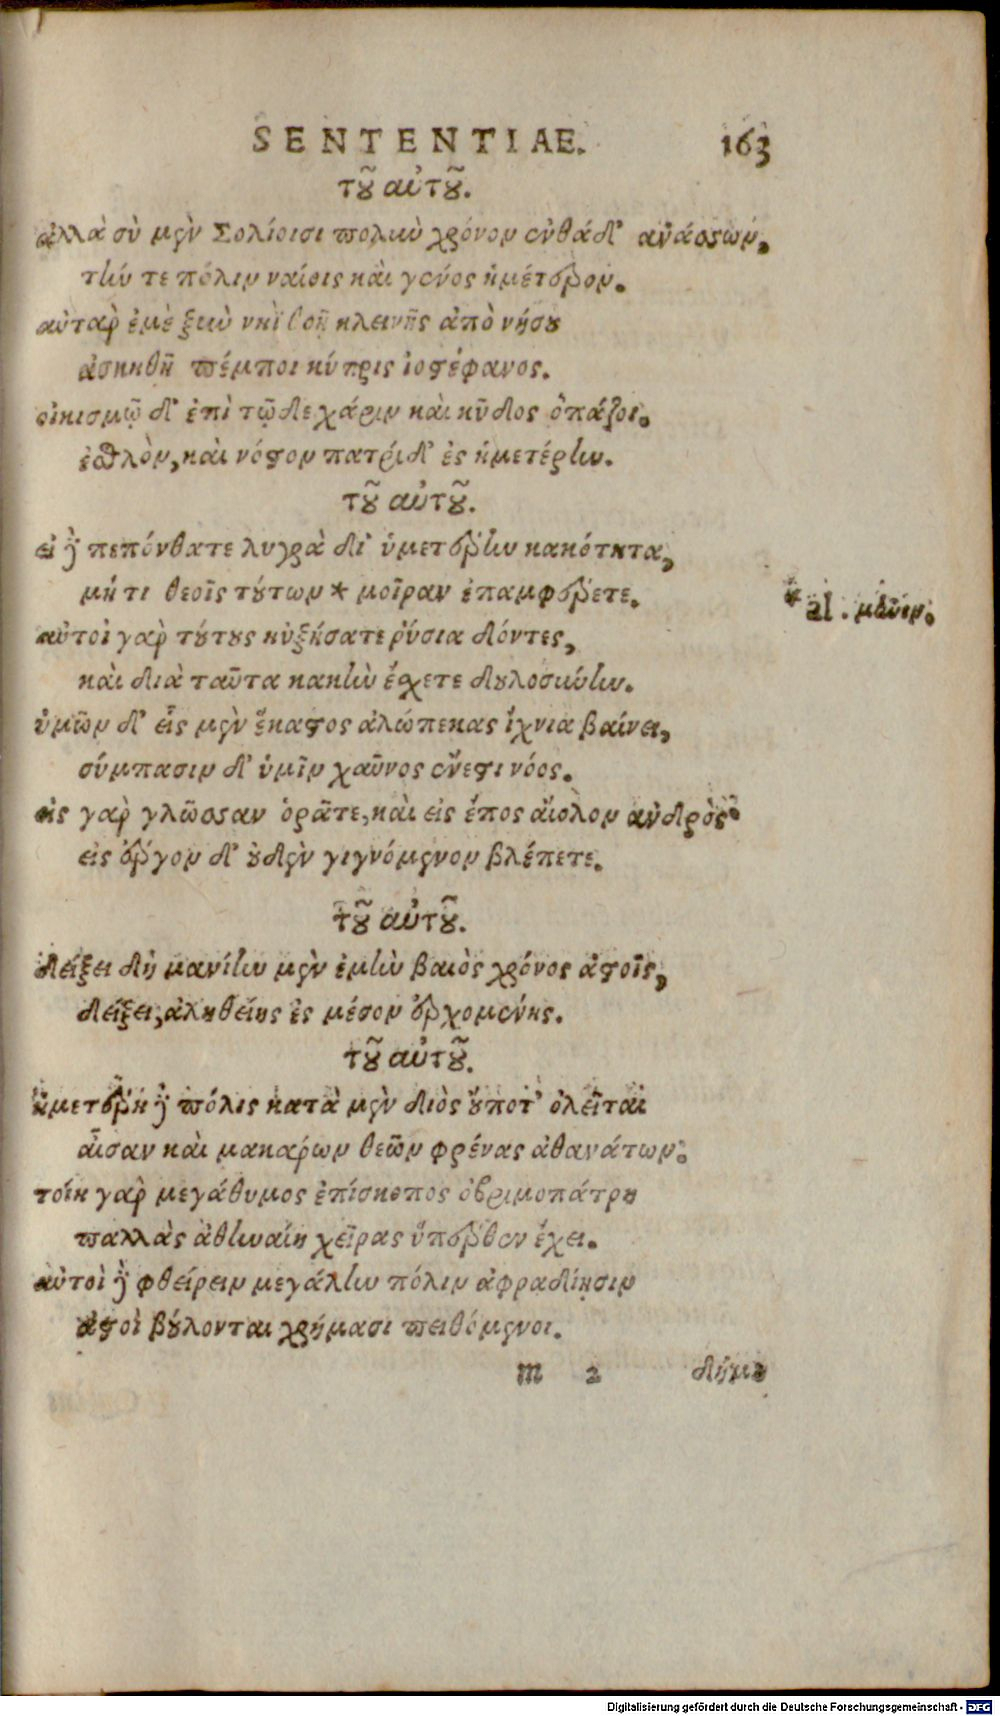 SENTENTIAE. 163
τοῦ αὐτοῦ.
ἀλλὰ σὺ μὲν Σολίοισι πολιὺ χρόνον ἐνθάδ' ἀνάσσων,
τήν τε πόλιν ναίοις καὶ γένος ἡμέτερον.
αὐτὰρ ἐμὲ ξιὺ νηῒ θοῇ κλεινῆς ἀπὸ νήσου
ἀσκηθῆ πέμποι κύπρις ἰοστέφανος.
οἰκισμῷ δ' ἐπὶ τῷδε χάριν καὶ κῦδος ὀπάζοι.
ἐσθλὸν, καὶ νόστον πατρίδ' ἐς ἡμετέρην.
τοῦ αὐτοῦ.
εἰ δὲ πεπόνθατε λυγρὰ δι' ὑμετέρην κακότητα,
μή τι θεοῖς τούτων * μοῖραν ἐπαμφέρετε.
* al. μῆνιν.
αὐτοὶ γὰρ τούτους ηὐξήσατε ῥύσια δόντες,
καὶ διὰ ταῦτα κακὴν ἔχετε δουλοσύνην.
ὑμῶν δ' εἷς μὲν ἕκαστος ἀλώπεκας ἴχνια βαίνει,
σύμπασιν δ' ὑμῖν χαῦνος ἔνεστι νόος.
εἰς γὰρ γλῶσσαν ὁρᾶτε, καὶ εἰς ἔπος αἴολον ἀνδρὸς·
εἰς ἔργον δ' οὐδὲν γιγνόμενον βλέπετε.
τοῦ αὐτοῦ.
δείξει δὴ μανίην μὲν ἐμὴν βαιὸς χρόνος ἀστοῖς,
δείξει, ἀληθείης ἐς μέσον ἐρχομένης.
τοῦ αὐτοῦ.
ἡμετέρη δὲ πόλις κατὰ μὲν διὸς οὔποτ' ὀλεῖται
αἶσαν καὶ μακάρων θεῶν φρένας ἀθανάτων·
τοίη γὰρ μεγάθυμος ἐπίσκοπος ὀβριμοπάτρη
παλλὰς ἀθηναίη χεῖρας ὕπερθεν ἔχει.
αὐτοὶ δὲ φθείρειν μεγάλην πόλιν ἀφραδίῃσιν
ἀστοὶ βούλονται χρήμασι πειθόμενοι.
m 2 δήμου
Digitalisierung gefördert durch die Deutsche Forschungsgemeinschaft - DFG